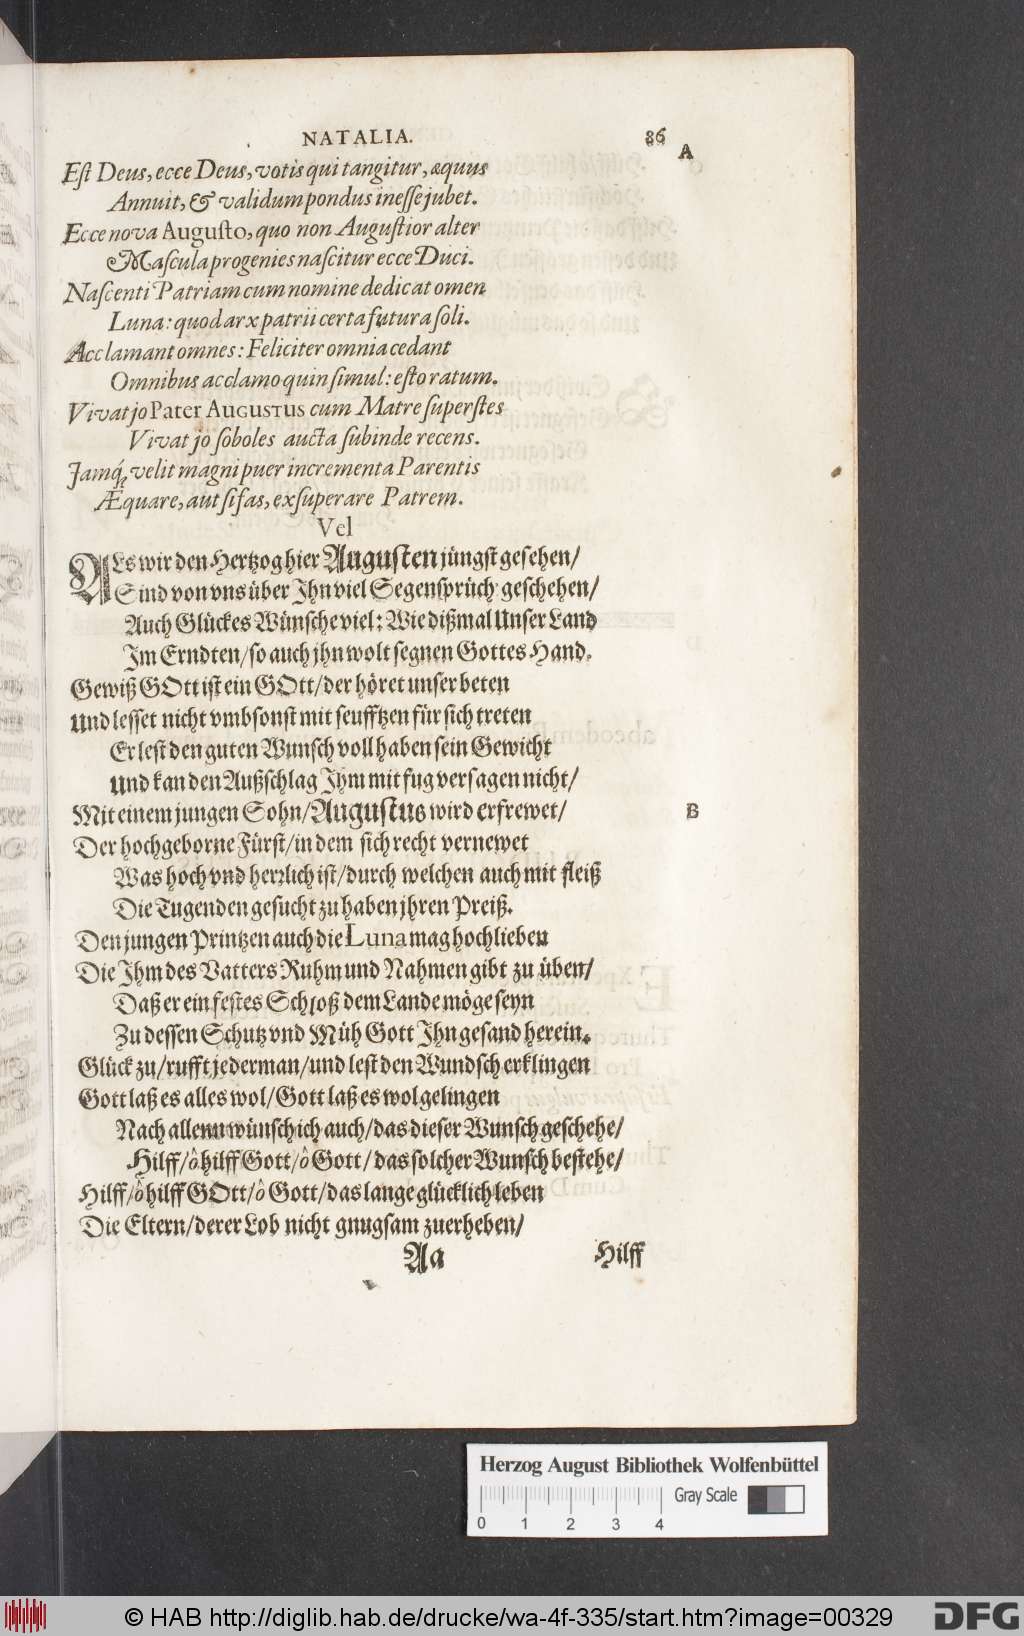 NATALIA. 86
A
Est Deus, ecce Deus, votis qui tangitur, æquus
Annuit, & validum pondus inesse jubet.
Ecce nova Augusto, quo non Augustior alter
Mascula progenies nascitur ecce Duci.
Nascenti Patriam cum nomine dedicat omen
Luna: quod arx patrii certa futura soli.
Acclamant omnes: Feliciter omnia cedant
Omnibus acclamo quin simul: esto ratum.
Vivat jo Pater AUGUSTUS cum Matre superstes
Vivat jo soboles aucta subinde recens.
Jamq́; velit magni puer incrementa Parentis
Æquare, aut si fas, exsuperare Patrem.
Vel
ALs wir den Hertzog hier Augusten jüngst gesehen/
Sind von vns über Ihn viel Segensprüch geschehen/
Auch Glückes Wünsche viel: Wie dißmal Unser Land
Im Erndten/so auch jhn wolt segnen Gottes Hand.
Gewiß GOtt ist ein GOtt/der höret unser beten
Und lesset nicht vmbsonst mit seufftzen für sich treten
Er lest den guten Wunsch voll haben sein Gewicht
Und kan den Außschlag Ihm mit fug versagen nicht/
Mit einem jungen Sohn/Augustus wird erfrewet/
B
Der hochgeborne Fürst/in dem sich recht vernewet
Was hoch vnd herrlich ist/durch welchen auch mit fleiß
Die Tugenden gesucht zu haben jhren Preiß.
Den jungen Printzen auch die Luna mag hochlieben
Die Ihm des Vatters Ruhm und Nahmen gibt zu üben/
Daß er ein festes Schloß dem Lande möge seyn
Zu dessen Schutz vnd Müh Gott Ihn gesand herein.
Glück zu/rufft jederman/und lest den Wundsch erklingen
Gott laß es alles wol/Gott laß es wol gelingen
Nach allenn wünsch ich auch/das dieser Wunsch geschehe/
Hilff/ô hilff Gott/ô Gott/das solcher Wunsch bestehe/
Hilff/ô hilff GOtt/ô Gott/das lange glücklich leben
Die Eltern/derer Lob nicht gnugsam zuerheben/
Aa Hilff
Herzog August Bibliothek Wolfenbüttel
Gray Scale
0 1 2 3 4
© HAB http://diglib.hab.de/drucke/wa-4f-335/start.htm?image=00329
DFG